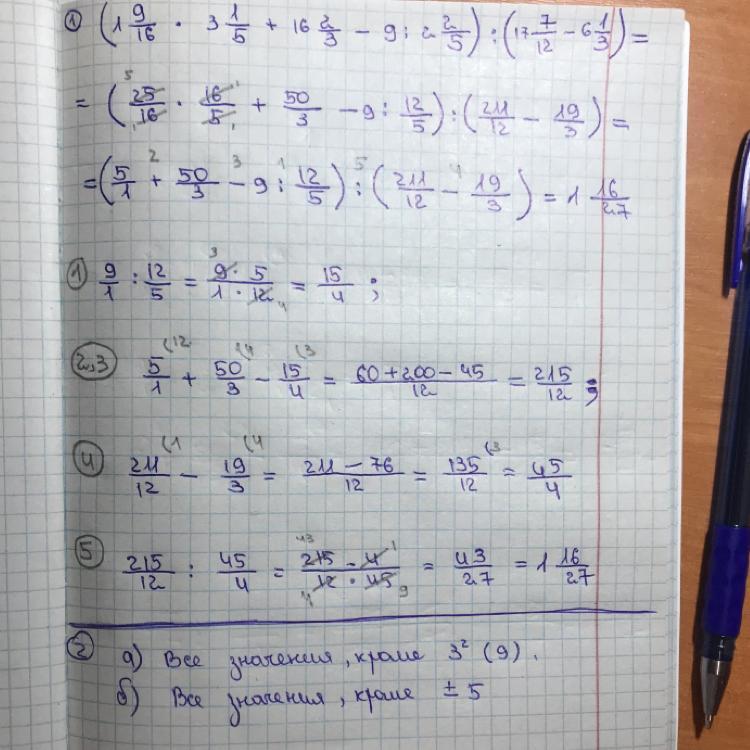 1) (1 9/16 · 3 1/5 + 16 2/3 − 9 : 2 2/5) : (17 7/12 − 6 1/3) =
= (25/16 · 16/5 + 50/3 − 9 : 12/5) : (211/12 − 19/3) =
= (5/1 + 50/3 − 9 : 12/5) : (211/12 − 19/3) = 1 16/27
1) 9/1 : 12/5 = 9 · 5/1 · 12 = 15/4 ;
2,3 5/1 + 50/3 − 15/4 = 60 + 200 − 45/12 = 215/12 ;
4 211/12 − 19/3 = 211 − 76/12 = 135/12 = 45/4
5 215/12 : 45/4 = 215 · 4/12 · 45 = 43/27 = 1 16/27
2 а) Все значения, кроме 3² (9).
б) Все значения, кроме ± 5